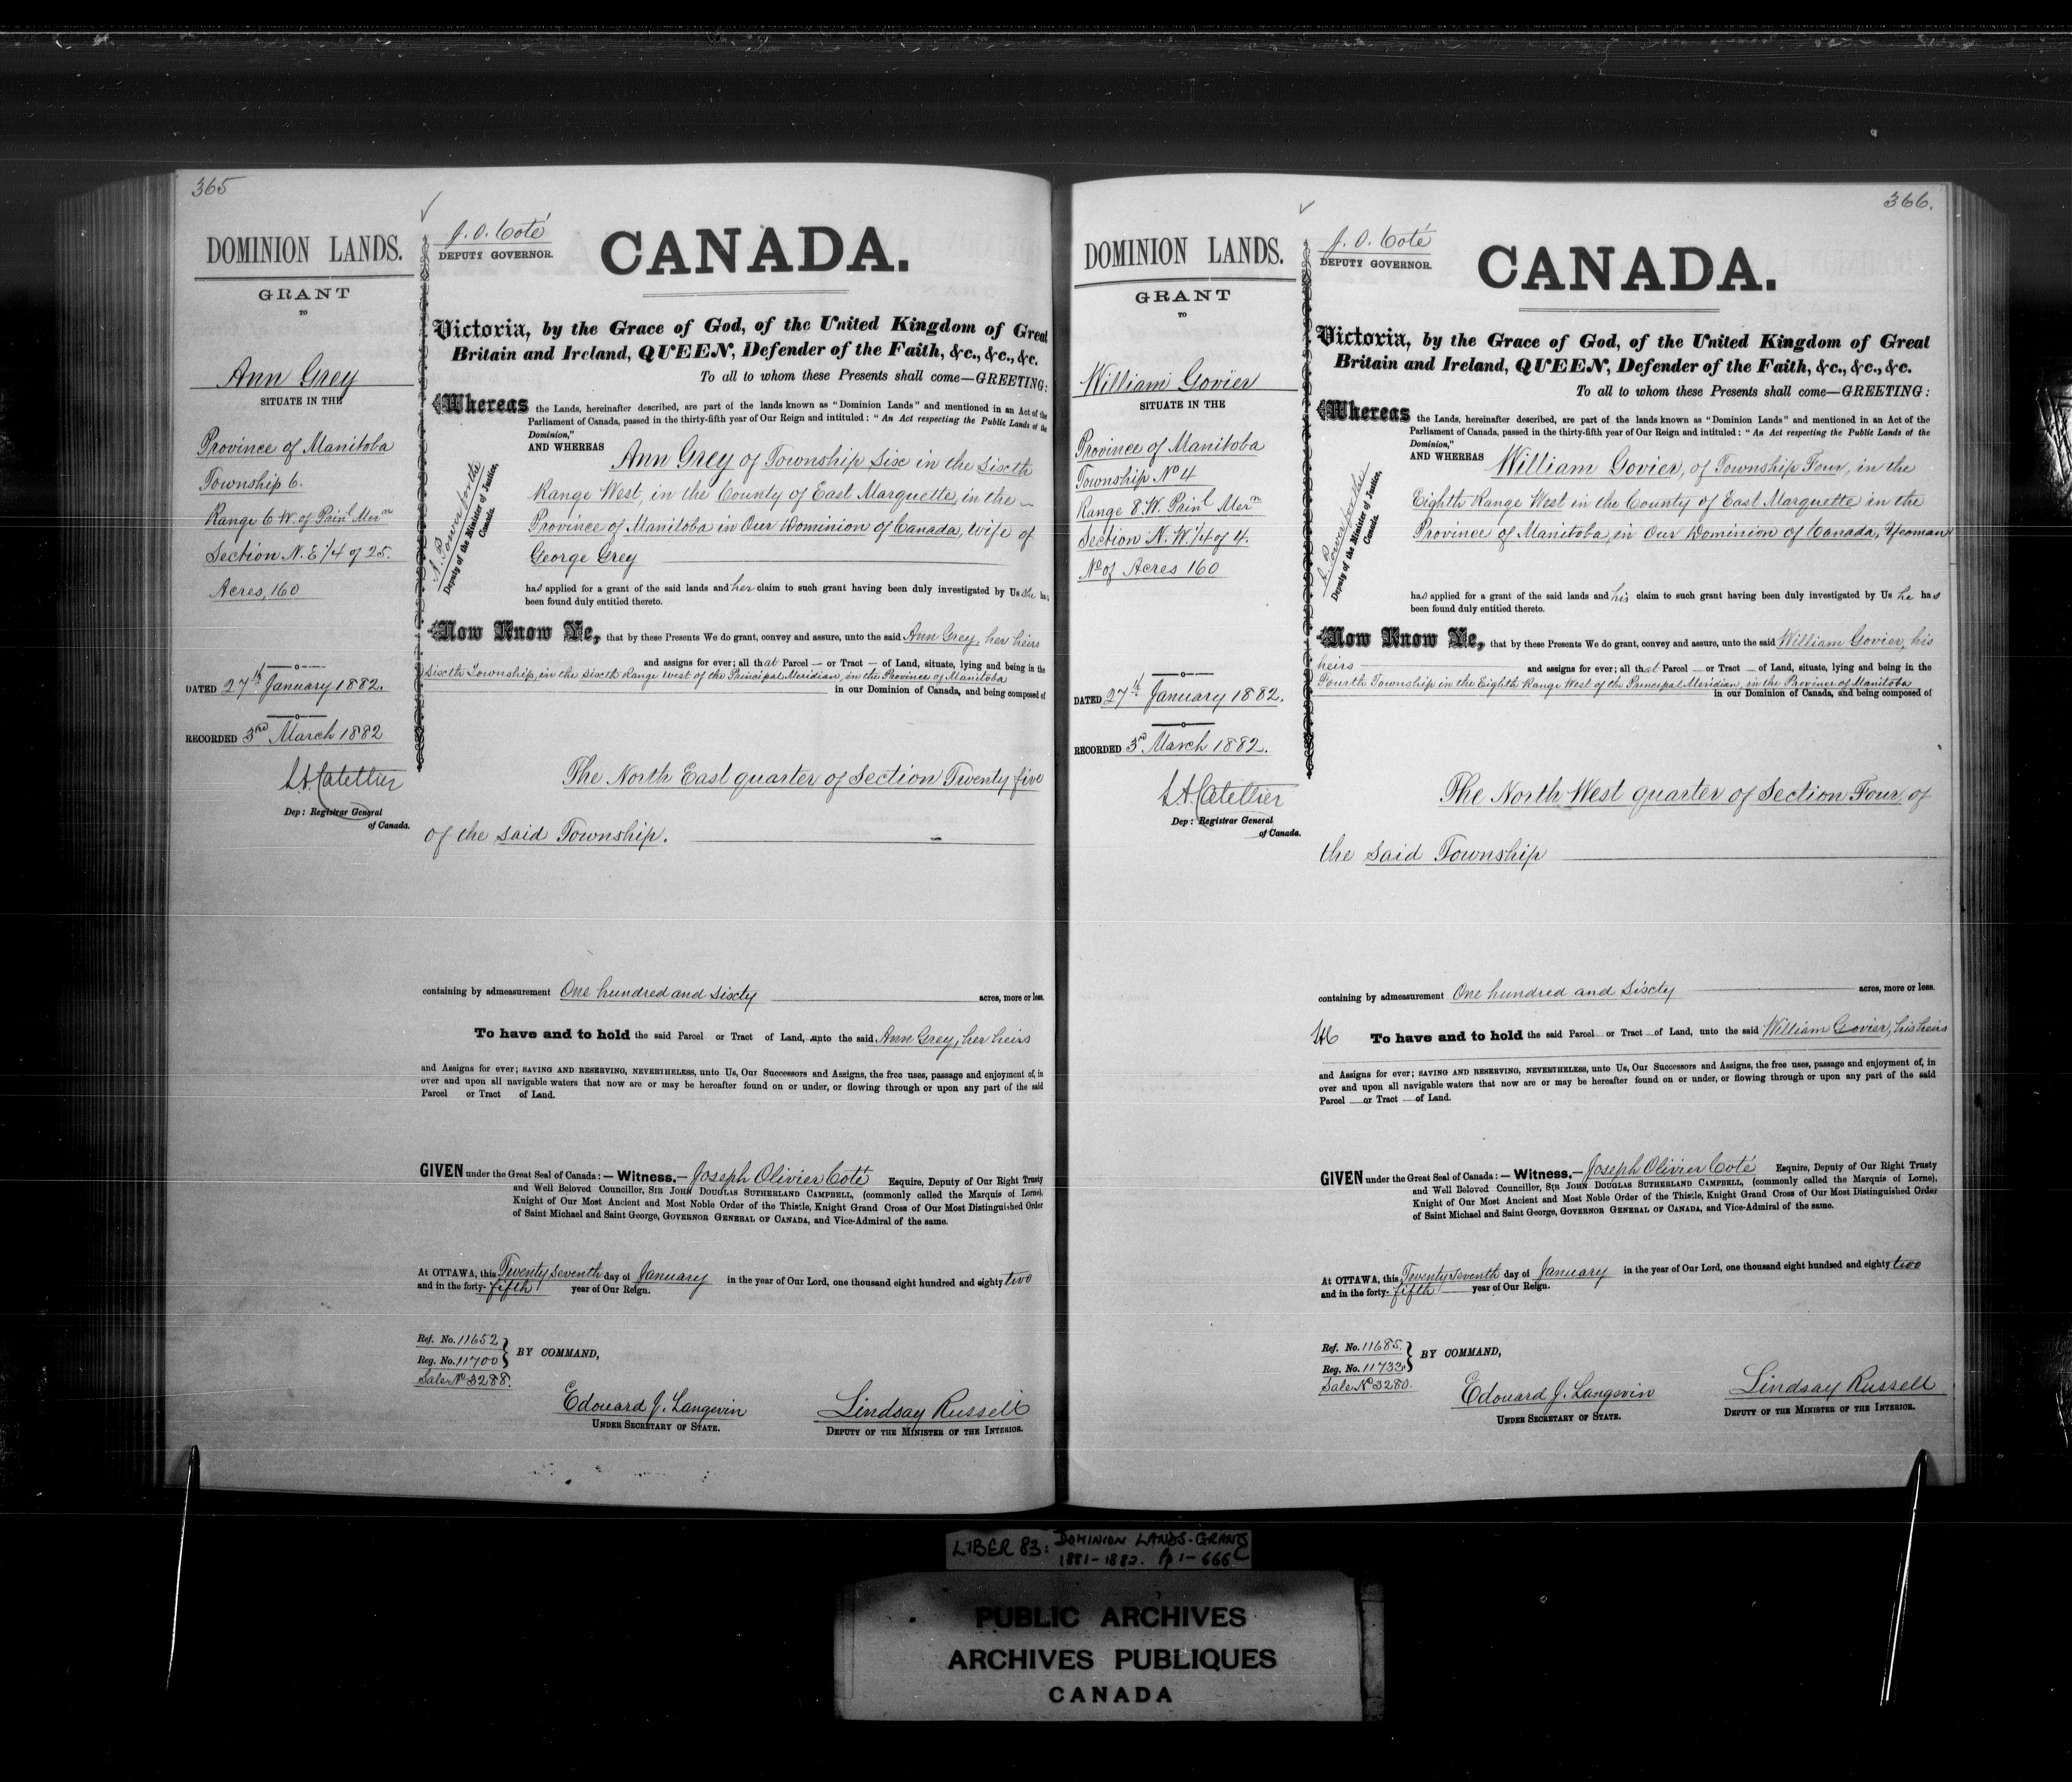 365
DOMINION LANDS.
GRANT
TO
Ann Grey
SITUATE IN THE
Province of Manitoba
Township 6.
Range 6 W. of Prin^l Mer^n
Section N. E 1/4 of 25.
Acres, 160
DATED 27th January 1882.
RECORDED 3rd March 1882
L. A. Catellier
Dep: Registrar General
of Canada.
J. O. Coté
DEPUTY GOVERNOR.
CANADA.
Victoria, by the Grace of God, of the United Kingdom of Great
Britain and Ireland, QUEEN, Defender of the Faith, &c., &c., &c.
To all to whom these Presents shall come—GREETING:
Whereas the Lands, hereinafter described, are part of the lands known as "Dominion Lands" and mentioned in an Act of the
Parliament of Canada, passed in the thirty-fifth year of Our Reign and intituled: "An Act respecting the Public Lands of the
Dominion,"
AND WHEREAS Ann Grey of Township Six in the Sixth
Range West, in the County of East Marquette, in the
Province of Manitoba in Our Dominion of Canada, wife of
George Grey
A. Power for the
Deputy of the Minister of Justice,
Canada.
has applied for a grant of the said lands and her claim to such grant having been duly investigated by Us she has
been found duly entitled thereto.
Now Know Ye, that by these Presents We do grant, convey and assure, unto the said Ann Grey, her heirs
and assigns for ever; all that Parcel — or Tract — of Land, situate, lying and being in the
Sixth Township, in the Sixth Range west of the Principal Meridian, in the Province of Manitoba
in our Dominion of Canada, and being composed of
The North East quarter of Section Twenty five
of the said Township.
containing by admeasurement One hundred and Sixty acres, more or less.
To have and to hold the said Parcel or Tract of Land, unto the said Ann Grey, her heirs
and Assigns for ever; SAVING AND RESERVING, NEVERTHELESS, unto Us, Our Successors and Assigns, the free uses, passage and enjoyment of, in
over and upon all navigable waters that now are or may be hereafter found on or under, or flowing through or upon any part of the said
Parcel or Tract of Land.
GIVEN under the Great Seal of Canada:—Witness,—Joseph Olivier Coté Esquire, Deputy of Our Right Trusty
and Well Beloved Councillor, SIR JOHN DOUGLAS SUTHERLAND CAMPBELL, (commonly called the Marquis of Lorne),
Knight of Our Most Ancient and Most Noble Order of the Thistle, Knight Grand Cross of Our Most Distinguished Order
of Saint Michael and Saint George, GOVERNOR GENERAL OF CANADA, and Vice-Admiral of the same.
At OTTAWA, this Twenty Seventh day of January in the year of Our Lord, one thousand eight hundred and eighty two
and in the forty-fifth year of Our Reign.
Ref. No. 11652
Reg. No. 11700
Sale No 3288.
BY COMMAND,
Edouard J. Langevin
UNDER SECRETARY OF STATE.
Lindsay Russell
DEPUTY OF THE MINISTER OF THE INTERIOR.
366.
DOMINION LANDS.
GRANT
TO
William Govier
SITUATE IN THE
Province of Manitoba
Township No 4
Range 8. W. Prin^l Mer^n
Section N. W. 1/4 of 4.
No of Acres 160
DATED 27th January 1882.
RECORDED 3rd March 1882.
L. A. Catellier
Dep: Registrar General
of Canada.
J. O. Coté
DEPUTY GOVERNOR.
CANADA.
Victoria, by the Grace of God, of the United Kingdom of Great
Britain and Ireland, QUEEN, Defender of the Faith, &c., &c., &c.
To all to whom these Presents shall come—GREETING:
Whereas the Lands, hereinafter described, are part of the lands known as "Dominion Lands" and mentioned in an Act of the
Parliament of Canada, passed in the thirty-fifth year of Our Reign and intituled: "An Act respecting the Public Lands of the
Dominion,"
AND WHEREAS William Govier, of Township Four, in the
Eighth Range West in the County of East Marquette in the
Province of Manitoba, in Our Dominion of Canada, Yeoman
A. Power for the
Deputy of the Minister of Justice,
Canada.
has applied for a grant of the said lands and his claim to such grant having been duly investigated by Us he has
been found duly entitled thereto.
Now Know Ye, that by these Presents We do grant, convey and assure, unto the said William Govier, his
heirs and assigns for ever; all that Parcel — or Tract — of Land, situate, lying and being in the
Fourth Township in the Eighth Range West of the Principal Meridian, in the Province of Manitoba
in our Dominion of Canada, and being composed of
The North West quarter of Section Four, of
the said Township
containing by admeasurement One hundred and Sixty acres, more or less.
To have and to hold the said Parcel or Tract of Land, unto the said William Govier, his heirs
and Assigns for ever; SAVING AND RESERVING, NEVERTHELESS, unto Us, Our Successors and Assigns, the free uses, passage and enjoyment of, in
over and upon all navigable waters that now are or may be hereafter found on or under, or flowing through or upon any part of the said
Parcel — or Tract — of Land.
GIVEN under the Great Seal of Canada:—Witness,—Joseph Olivier Coté Esquire, Deputy of Our Right Trusty
and Well Beloved Councillor, SIR JOHN DOUGLAS SUTHERLAND CAMPBELL, (commonly called the Marquis of Lorne),
Knight of Our Most Ancient and Most Noble Order of the Thistle, Knight Grand Cross of Our Most Distinguished Order
of Saint Michael and Saint George, GOVERNOR GENERAL OF CANADA, and Vice-Admiral of the same.
At OTTAWA, this Twenty Seventh day of January in the year of Our Lord, one thousand eight hundred and eighty two
and in the forty-fifth year of Our Reign.
Ref. No. 11685.
Reg. No. 11733
Sale No 3280.
BY COMMAND,
Edouard J. Langevin
UNDER SECRETARY OF STATE.
Lindsay Russell
DEPUTY OF THE MINISTER OF THE INTERIOR.
LIBER 83: DOMINION LANDS-GRANTS
1881-1882. Pp 1-666
PUBLIC ARCHIVES
ARCHIVES PUBLIQUES
CANADA